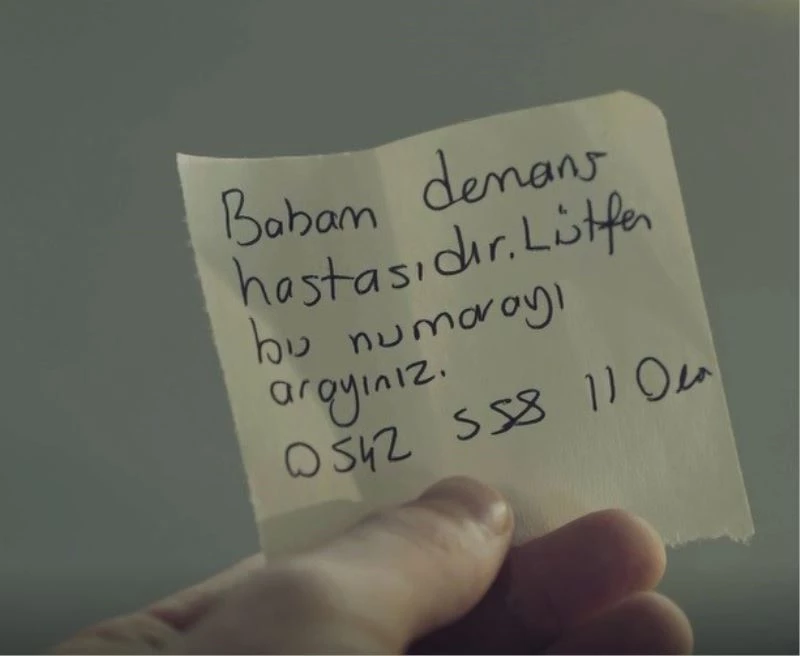 Babam demans
hastasıdır. Lütfen
bu numarayı
arayınız.
0542 558 11 0